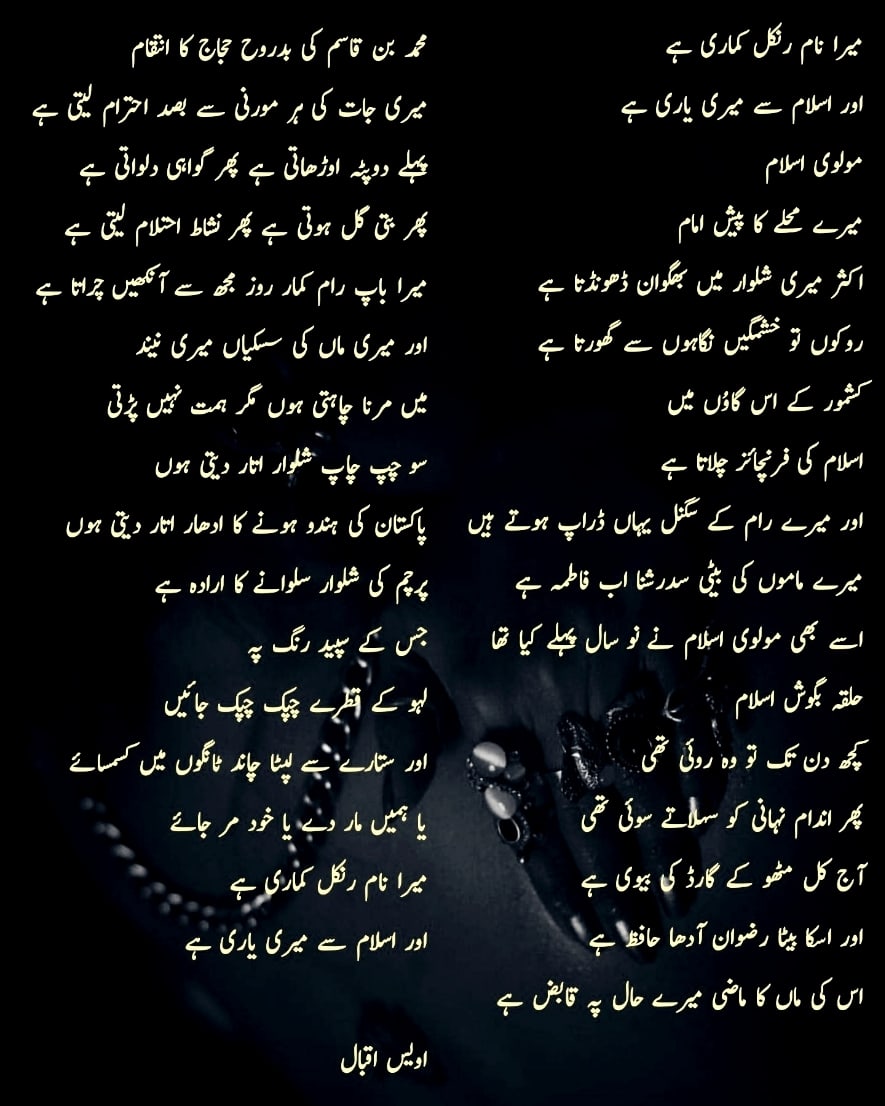 میرا نام رنکل کماری ہے
اور اسلام سے میری یاری ہے
مولوی اسلام
میرے محلے کا پیش امام
اکثر میری شلوار میں بھگوان ڈھونڈتا ہے
روکوں تو خشمگیں نگاہوں سے گھورتا ہے
کشمور کے اس گاؤں میں
اسلام کی فرنچائز چلاتا ہے
اور میرے رام کے سگنل یہاں ڈراپ ہوتے ہیں
میرے ماموں کی بیٹی سدرشنا اب فاطمہ ہے
اسے بھی مولوی اسلام نے نو سال پہلے کیا تھا
حلقہ بگوش اسلام
کچھ دن تک تو وہ روئی تھی
پھر اندام نہانی کو سہلاتے سوئی تھی
آج کل مٹھو کے گارڈ کی بیوی ہے
اور اسکا بیٹا رضوان آدھا حافظ ہے
اس کی ماں کا ماضی میرے حال پہ قابض ہے
محمد بن قاسم کی بدروح حجاج کا انتقام
میری جات کی ہر مورنی سے بصد احترام لیتی ہے
پہلے دوپٹہ اوڑھاتی ہے پھر گواہی دلواتی ہے
پھر بتی گل ہوتی ہے پھر نشاط احتلام لیتی ہے
میرا باپ رام کمار روز مجھ سے آنکھیں چراتا ہے
اور میری ماں کی سسکیاں میری نیند
میں مرنا چاہتی ہوں مگر ہمت نہیں پڑتی
سو چپ چاپ شلوار اتار دیتی ہوں
پاکستان کی ہندو ہونے کا ادھار اتار دیتی ہوں
پرچم کی شلوار سلوانے کا ارادہ ہے
جس کے سپید رنگ پہ
لہو کے قطرے چپک چپک جائیں
اور ستارے سے لپٹا چاند ٹانگوں میں کسمسائے
یا ہمیں مار دے یا خود مر جائے
میرا نام رنکل کماری ہے
اور اسلام سے میری یاری ہے
اویس اقبال